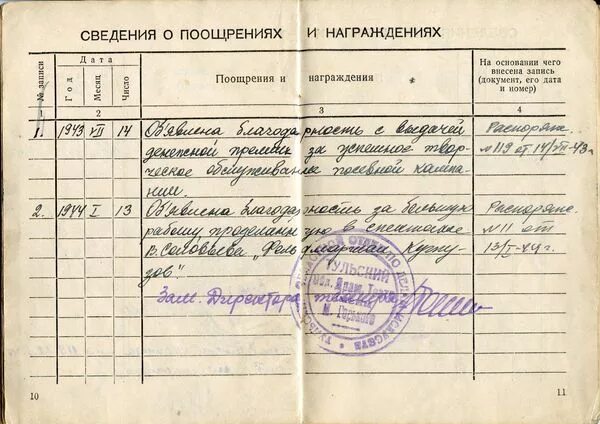 СВЕДЕНИЯ О ПООЩРЕНИЯХ И НАГРАЖДЕНИЯХ
№ записи
Дата
Год
Месяц
Число
Поощрения и награждения
На основании чего внесена запись (документ, его дата и номер)
1 2 3 4
1. 1943 VII 14 Объявлена благодарность с выдачей Распоряж.
денежной премии за успешное твор- №119 от 14/VII-43г.
ческое обслуживание посевной кампа-
нии.
2. 1944 I 13 Объявлена благодарность за большую Распоряж.
работу проделанную в спектакле №11 от
В. Соловьева „Фельдмаршал Куту- 13/I-44г.
зов"
Зам. Директора театра
ТУЛЬСКИЙ
Обл. Драм. Театр
М. Горького
ОТДЕЛ ПО ДЕЛАМ ИСКУССТВ
10
11